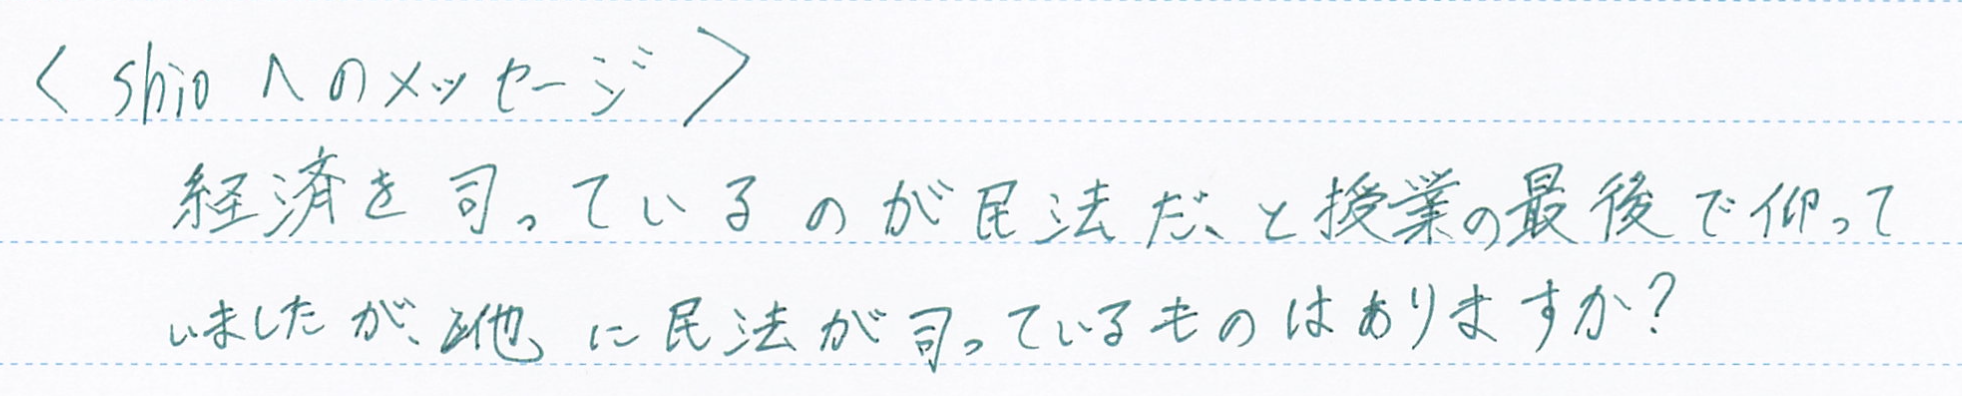 〈 shio へのメッセージ 〉
経済を司っているのが民法だ、と授業の最後で仰って
いましたが、他に民法が司っているものはありますか?